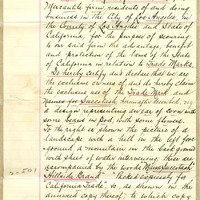 Mercantile firm, residents of and doing
business in the City of Los Angeles, in
the County of Los Angeles and State of
California, for the purpose of securing
to our said firm the advantage, benefit
and protection of the laws of the State
of California in relation to Trade Marks.
Do hereby certify and declare that we are
the exclusive owners of, and do hereby claim
the exclusive use of the Trade Mark and
names for Succotash,
a design representing an ear of corn and
some beans in pod, with some flowers.
To the right is shown the picture of a
landscape with a hill in the left fore-
ground a mountain in the background
and sheet of water intervening. Here are
accompanied by the words
Hillside Brand" "Packed expressly for
California Trade", as shown in the
annexed copy thereof; to which copy